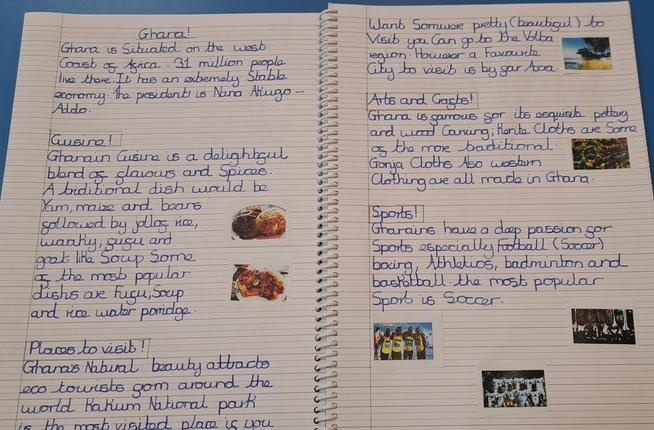 Ghana!
Ghana is Situated on the west
Coast of Africa. 31 million people
live there. It has an extremely Stable
economy. the president is Nana Akugo -
Addo.
Cuisine!
Ghanain Cuisine is a delightful
blend of flavours and Spices.
A traditional dish would be
Yam, maize and beans
followed by jollof rice,
waaky, fugu and
goat like Soup Some
of the most popular
dishs are Fugu, Soup
and rice water poridge.
Places to visit!
Ghana's Natural beauty attracts
eco tourists from around the
world Kakum National park
is the most visited place is you
Want Somwere pretty (beautiful) to
Visit you Can go to the Volta
region. However a Favourite
City to visit is by far Accra.
Arts and Crafts!
Ghana is famous for its exquisite pottery
and wood Carving, Kente Cloths are Some
of the more traditional.
Gonja Cloths Also western
Clothing are all made in Ghana.
Sports!
Ghanains have a deep passion for
Sports especially football (Soccer)
boxing, Athletics, badminton and
basketball. the most popular
Sport is Soccer.